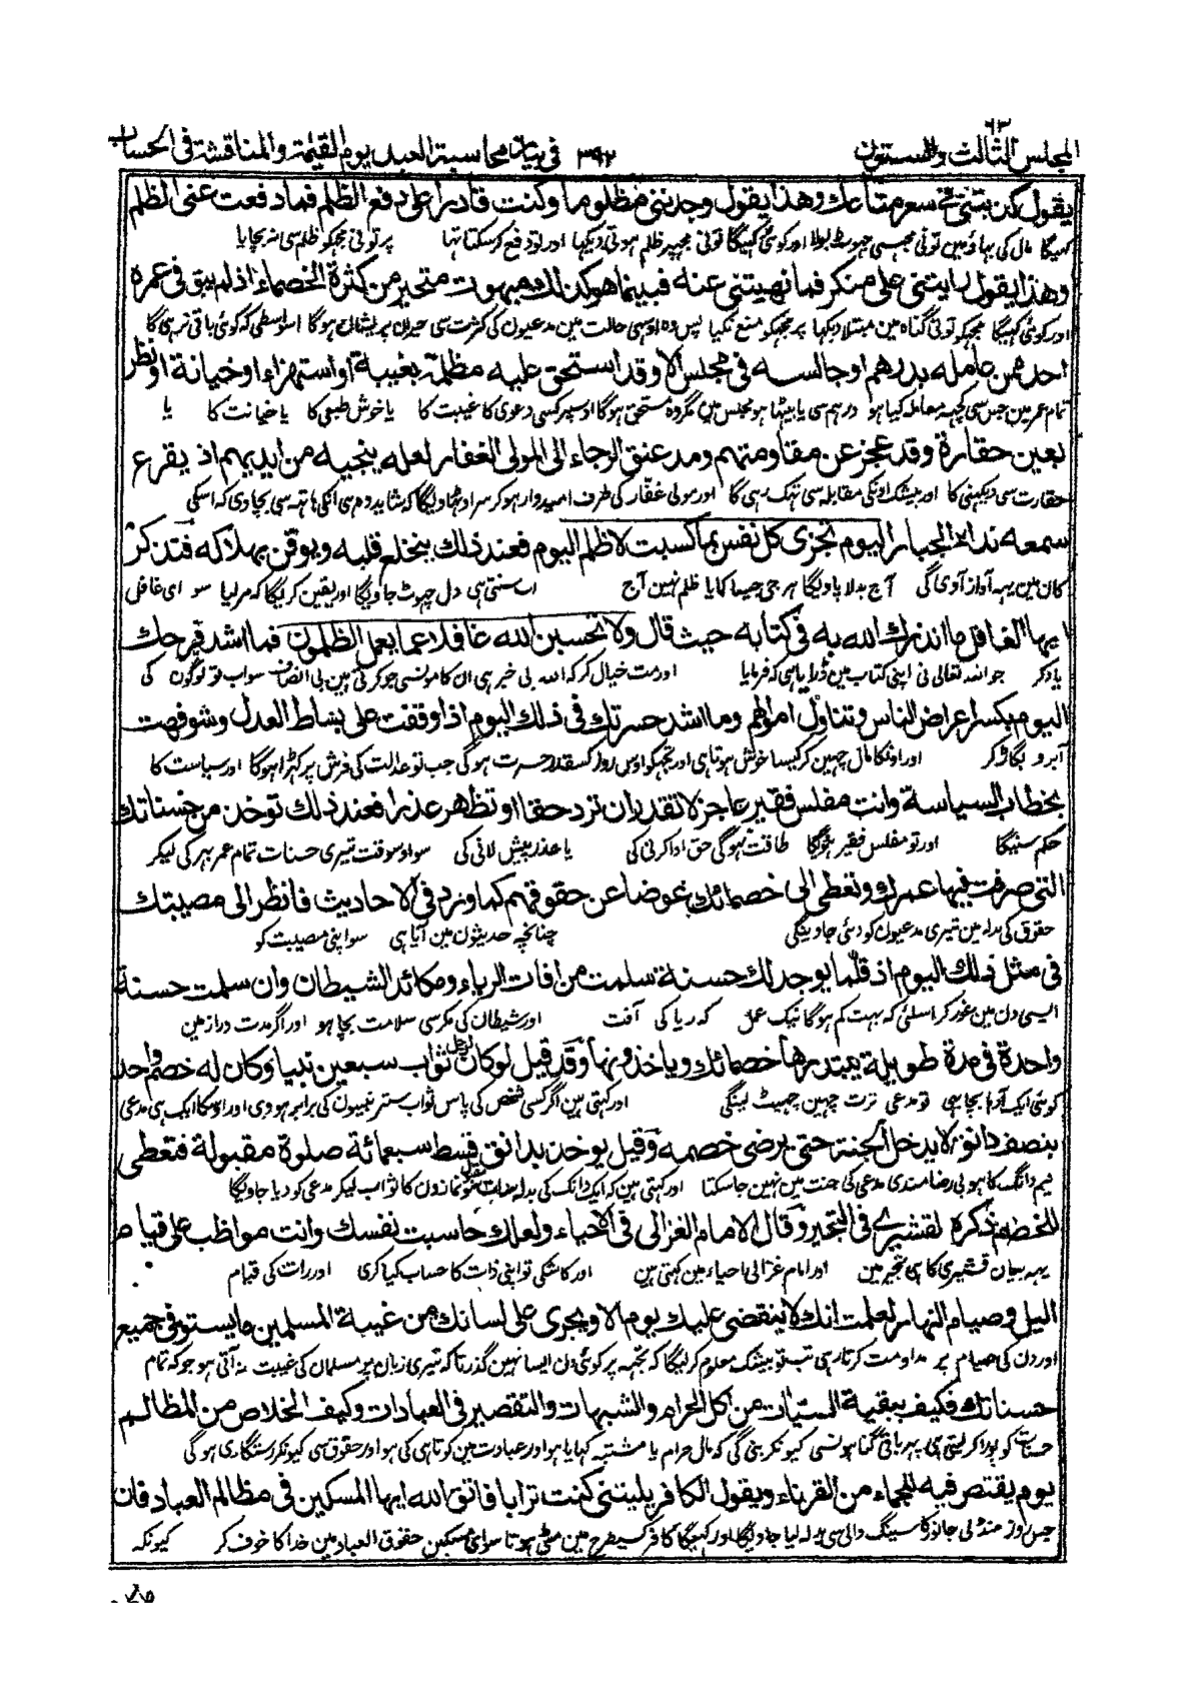 ٦٣
المجلس الثالث والستون ٣٩٢ في بيان محاسبة العبد يوم القيمة والمناقشة في الحساب
يقول كذبتني في سعر متاعك وهذا يقول وجدتني مظلوما وكنت قادرا على دفع الظلم فما دفعت عني الظلم
کہیگا مال کی بہاؤ مین تونی مجہسی جہوٹ بولا اور کوئی کہیگا تونی مجہپر ظلم ہوتی دیکہا اور تو دفع کرسکتا تہا پر تونی مجہکو ظلم سی نہ بچایا
وهذا يقول رايتني على منكر فما نهيتني عنه فبينما هو كذلك مبهوت متحير من كثرة الخصماء اذ لم يبق في عمره
اور کوئی کہیگا مجہکو تونی گناہ مین مبتلا دیکہا پر مجہکو منع نکیا پس وہ اوسی حالت مین مدعیون کی کثرت سی حیران پریشان ہوگا اسواسطی کہ کوئی باقی نرہی گا
احد ممن عامله بدرهم او جالسه في مجلس الا وقد استحق عليه مظلمة بغيبة او استهزاء او خيانة او نظر
تمام عمر مین جس سی کچہہ معاملہ کیا ہو درہم سی یا بیٹہا ہو مجلس مین مگر وہ مستحق ہوگا اوسپر کسی دعوی کا غیبت کا یا خوش طبعی کا یا خیانت کا یا
بعين حقارة وقد عجز عن مقاومتهم ومد عنق الرجاء الى المولى الغفار لعله ينجيه من ايديهم اذ يقرع
حقارت سی دیکہنی کا اور بیشک اونکی مقابلہ سی تہک رہی گا اور مولی غفار کی طرف امیدوار ہوکر سر اوٹہاویگا کہ شاید وہ ہی انکی ہاتہہ سی بچاوی کہ اسکی
سمعه نداء الجبار اليوم تجزى كل نفس بما كسبت لا ظلم اليوم فعند ذلك ينخلع قلبه ويوقن بهلاكه فتذكر
کان مین یہہ آواز آوی گی آج بدلا پاویگا ہر جی جیسا کمایا ظلم نہین آج اسے سنتی ہی دل چہوٹ جاویگا اور یقین کریگا کہ مر لیا سو ای غافل
ايها الغافل ما انذرك الله به في كتابه حيث قال ولا تحسبن الله غافلا عما يعمل الظلمون فما اشد فرحك
یادکر جو اللہ تعالی نی اپنی کتاب مین ڈرایا ہی کہ فرمایا اور مت خیال کر کہ اللہ بی خبر ہی ان کامونسی جو کرتی ہین بی انصاف سو اب تو لوگون کی
اليوم بكسر اعراض الناس وتناول اموالهم وما اشد حسرتك في ذلك اليوم اذا وقفت على بساط العدل وشوفهت
آبرو بگاڑکر اور اونکا مال چہین کر کیسا خوش ہوتا ہی اور تجہکو اوس روز کسقدر حسرت ہوگی جب تو عدالت کی فرش پر کہڑا ہوگا اور سیاست کا
بخطاب السياسة وانت مفلس فقير عاجز لا تقدر ان ترد حقا او تظهر عذرا فعند ذلك توخذ من حسناتك
حکم سنیگا اور تو مفلس فقیر ہوگا طاقت نہوگی حق ادا کرنی کی یا عذر پیش لانی کی سو اوسوقت تیری حسنات تمام عمر بہر کی لیکر
التي صرفت فيها عمرك وتعطى الى خصمائك عوضا عن حقوقهم كما ورد في الاحاديث فانظر الى مصيبتك
حقوق کی بدلہ مین تیری مدعیون کو دئی جاوینگی چنانچہ حدیثون مین آیا ہی سو اپنی مصیبت کو
في مثل ذلك اليوم اذ قلما يوجد لك حسنة سلمت من افات الرياء ومكائد الشيطان وان سلمت حسنة
ایسی دن مین غور کر اسلئی کہ بہت کم ہوگا نیک عمل کہ ریا کی آفت اور شیطان کی مکر سی سلامت بچا ہو اور اگر مدت دراز مین
واحدة في مدة طويلة يبتدرها خصمائك وياخذونها وقد قيل لو كان لرجل ثواب سبعين نبيا وكان له خصم واحد
کوئی ایک آدہا بچا بہی تو مدعی ترت چہین جہپٹ لینگی اور کہتی ہین اگر کسی شخص کی پاس ثواب ستر نبیون کی برابر ہووی اور اوسکا ایک ہی مدعی
بنصف دانق لا يدخل الجنة حتى يرضى خصمه وقيل يوخذ بدانق قسط سبعمائة صلوة مقبولة فتعطى
نیم دانگ کا ہو بی رضامندی مدعی کی جنت مین نہین جاسکتا اور کہتی ہین کہ ایک دانگ کی بدلہ سات سو مقبول نمازون کا ثواب لیکر مدعی کو دیا جاویگا
للخصم ذكره القشيري في التحبير وقال الامام الغزالي في الاحياء ولعلك حاسبت نفسك وانت مواظب على قيام
یہہ بیان قشیری کا ہی تحبیر مین اور امام غزالی احیاء مین کہتی ہین اور کاشکی تو اپنی ذات کا حساب کیا کری اور رات کی قیام
اليل وصيام النهار لعلمت انك لا ينقضي عليك يوم الا ويجري على لسانك من غيبة المسلمين ما يستوفي جميع
اور دن کی صیام پر مداومت کرتا رہی تب تو بیشک معلوم کرلیگا کہ تجہہ پر کوئی دن ایسا نہین گذرتا کہ تیری زبان پر مسلمان کی غیبت نہ آتی ہو جو کہ تمام
حسناتك فكيف ببقية السيئات من اكل الحرام والشبهات والتقصير في العبادات وكيف الخلاص من المظالم
حسنات کو پورا کرلیتی ہی پہر باقی گناہونسی کیونکر بنی گی کہ مال حرام یا مشتبہ کہایا ہو اور عبادت مین کوتاہی کی ہو اور حقوق سی کیونکر رستگاری ہوگی
يوم يقتص فيه للجماء من القرناء ويقول الكافر يليتني كنت ترابا فاتق الله ايها المسكين في مظالم العباد فان
جس روز منڈلی جانور کا سینگ والی سی بدلہ لیا جاویگا اور کہیگا کافر کسیطرح مین مٹی ہوتا سو ای مسکین حقوق العباد مین خدا کا خوف کر کیونکہ